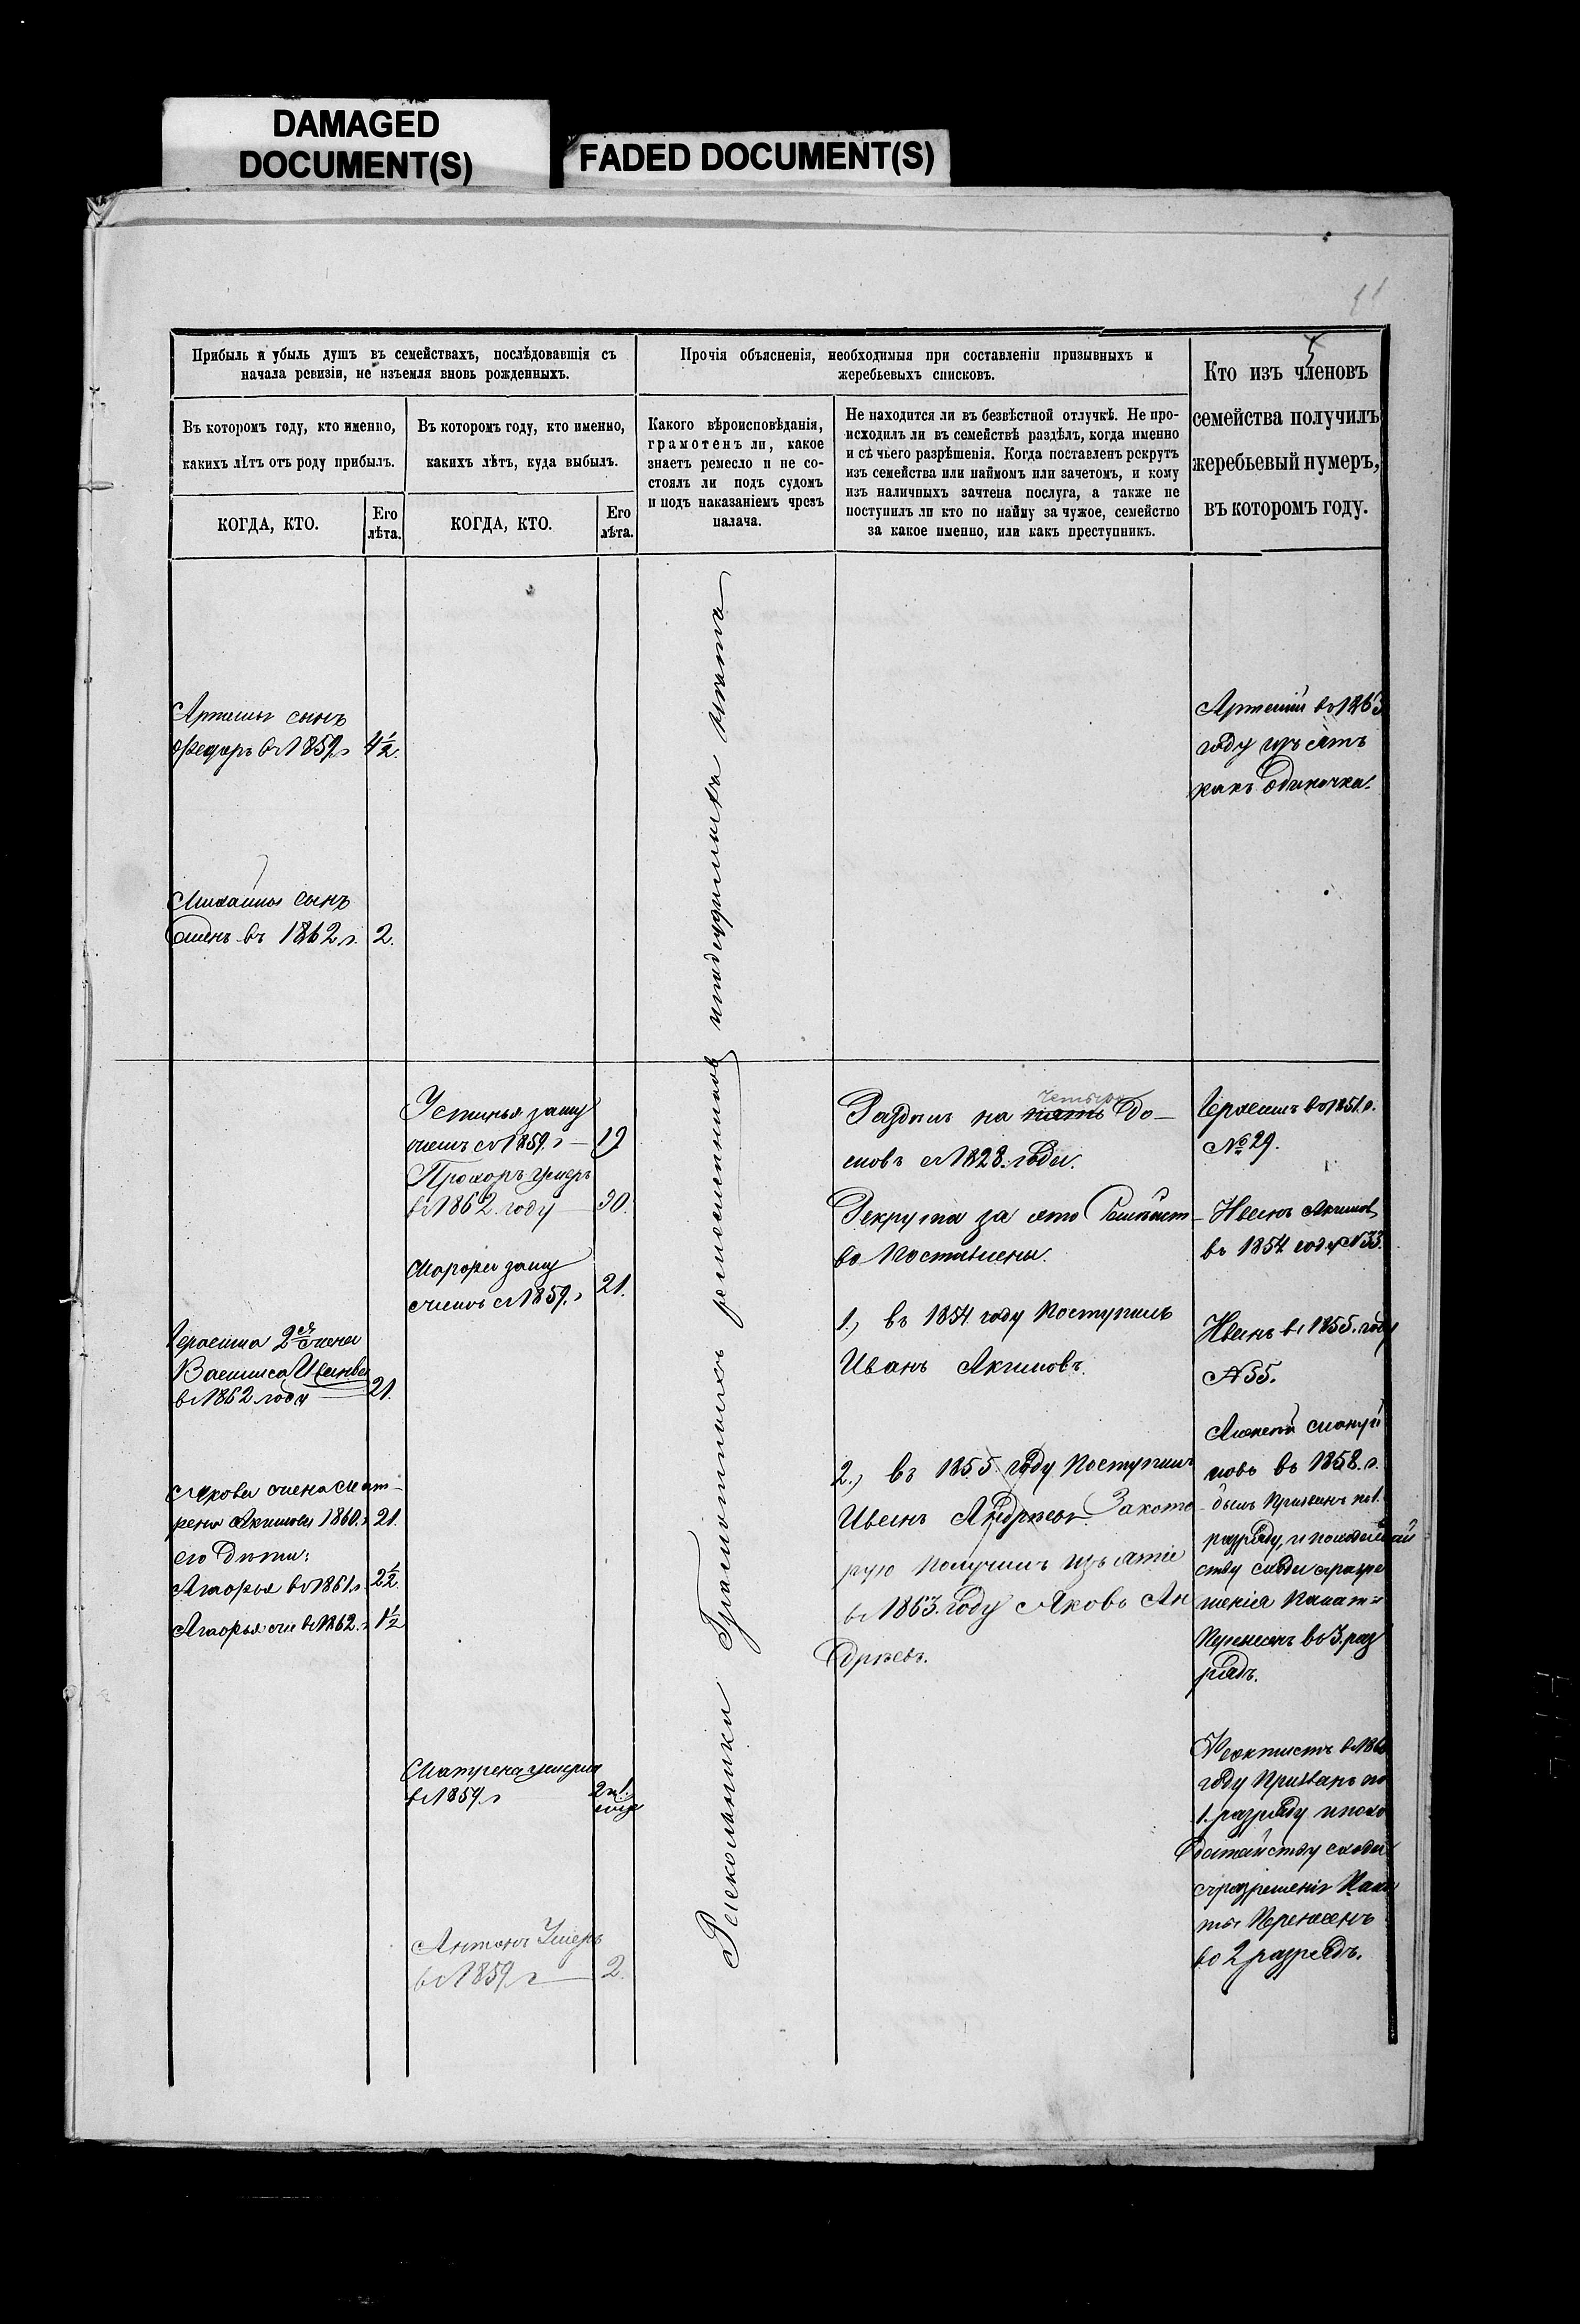 DAMAGED
DOCUMENT(S)
FADED DOCUMENT(S)
5
Прибыль и убыль душъ въ семействахъ, послѣдовавшія съ
начала ревизіи, не изъемля вновь рожденныхъ.
Въ которомъ году, кто именно,
какихъ лѣтъ отъ роду прибылъ.
КОГДА, КТО.
Его
лѣта.
Въ которомъ году, кто именно,
какихъ лѣтъ, куда выбылъ.
КОГДА, КТО.
Его
лѣта.
Прочія объясненія, необходимыя при составленіи призывныхъ и
жеребьевыхъ списковъ.
Какого вѣроисповѣданія,
грамотенъ ли, какое
знаетъ ремесло и не со-
стоялъ ли подъ судомъ
и подъ наказаніемъ чрезъ
палача.
Не находится ли въ безвѣстной отлучкѣ. Не про-
исходилъ ли въ семействѣ раздѣлъ, когда именно
и съ чьего разрѣшенія. Когда поставленъ рекрутъ
изъ семейства или наймомъ или зачетомъ, и кому
изъ наличныхъ зачтена послуга, а также не
поступилъ ли кто по найму за чужое, семейство
за какое именно, или какъ преступникъ.
Кто изъ членовъ
семейства получилъ
жеребьевый нумеръ,
въ которомъ году.
Артемья сынъ
Федоръ въ 1859 г 4½.
Михайлы сынъ
въ 1862 г. 2.
Герасима 2я жена
Васлиса Иванова
въ 1862 году 21.
Якова жена Мат-
рена Акимова 1860. г 21.
его дѣти:
Агафья въ 1861 г. 2½.
въ 1862. г 1½
Устинья заму
жемъ съ 1859. г 19
Прохоръ умеръ
въ 1862. году 30.
Марфа заму
жемъ съ 1859. г 21.
Матрена умерла
въ 1859. г
Антонъ Умеръ
въ 1859 г 2.
Раскольники Грамотныхъ ремесленниковъ
Четыре
Раздѣлъ на пять До-
мовъ съ 1828. года.
Рекрута за это Семейст-
во Поставлены.
1., въ 1854 году Поступилъ
Иванъ Акимовъ.
2., въ 1855. году Поступилъ
Иванъ Андреевъ. За кото
рую Получилъ изъятіе
въ 1863. году Яковъ Ан
дреевъ.
Артемій въ 1863
году изъятъ
какъ Одиночка.
Герасимъ въ 1851. г.
№ 29.
Иванъ Акимовъ
въ 1854 году № 33.
Иванъ въ 1855. году
№ 55.
въ 1858. г.
былъ Призванъ по 1.
разряду, и по ходатай
ству съ разрѣ
шенія Палаты
Перенесенъ въ 3. раз
рядъ.
Феоктистъ въ
году Призванъ по
1. разряду и похо
датайству
съ разрешенія Пала
ты Перенесенъ
во 2 разрядъ.